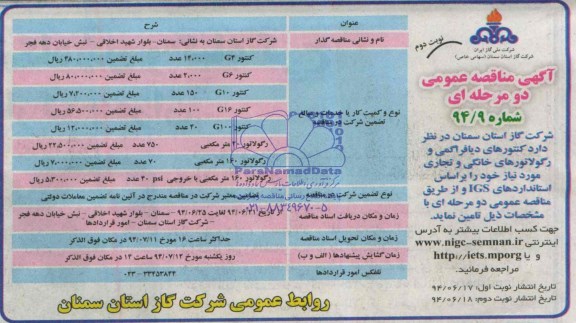 شرکت ملی گاز ایران
شرکت گاز استان سمنان (سهامی خاص)
نوبت دوم
آگهی مناقصه عمومی
دو مرحله ای
شماره ۹۴/۹
شرکت گاز استان سمنان در نظر
دارد کنتورهای دیافراگمی و
رگولاتورهای خانگی و تجاری
مورد نیاز خود را براساس
استانداردهای IGS و از طریق
مناقصه عمومی دو مرحله ای با
مشخصات ذیل تامین نماید.
جهت کسب اطلاعات بیشتر به آدرس
اینترنتی www.nigc-semnan.ir
و یا http://iets.mporg
مراجعه فرمائید.
تاریخ انتشار نوبت اول: ۹۴/۰۶/۱۷
تاریخ انتشار نوبت دوم: ۹۴/۰۶/۱۸
عنوان شرح
نام و نشانی مناقصه گذار شرکت گاز استان سمنان به نشانی: سمنان- بلوار شهید اخلاقی - نبش خیابان دهه فجر
نوع و کمیت کار یا خدمات و مبالغ تضمین شرکت در مناقصه
کنتور G4 ۱۲,۰۰۰ عدد مبلغ تضمین ۲۸۰,۰۰۰,۰۰۰ ریال
کنتور G6 ۲,۰۰۰ عدد مبلغ تضمین ۸۰,۰۰۰,۰۰۰ ریال
کنتور G10 ۱۵۰ عدد مبلغ تضمین ۷,۲۰۰,۰۰۰ ریال
کنتور G16 ۱۰۰ عدد مبلغ تضمین ۵۶,۵۰۰,۰۰۰ ریال
کنتور G100 ۲۰ عدد مبلغ تضمین ۱۲,۰۰۰,۰۰۰ ریال
رگولاتور ۲۰ متر مکعبی ۷۵۰ عدد مبلغ تضمین ۲۲,۵۰۰,۰۰۰ ریال
رگولاتور ۱۶۰ متر مکعبی ۷۰ عدد مبلغ تضمین ۷,۰۰۰,۰۰۰ ریال
رگولاتور ۱۶۰ متر مکعبی با خروجی psi ۳۰ عدد مبلغ تضمین ۵,۳۰۰,۰۰۰ ریال
نوع تضمین شرکت در مناقصه تضامین معتبر شرکت در مناقصه مندرج در آئین نامه تضمین معاملات دولتی
زمان و مکان دریافت اسناد مناقصه از تاریخ لغایت ۹۴/۰۶/۲۵ - سمنان - بلوار شهید اخلاقی - نبش خیابان دهه فجر
- شرکت گاز استان سمنان - امور قراردادها
زمان و مکان تحویل اسناد مناقصه حداکثر ساعت ۱۶ مورخ ۹۴/۰۷/۱۱ در مکان فوق الذکر
زمان گشایش پیشنهادها (الف و ب) روز یکشنبه مورخ ۹۴/۰۷/۱۲ ساعت ۱۲ در مکان فوق الذکر
تلفکس امور قراردادها ۰۲۳-۳۳۴۵۳۸۴۲
روابط عمومی شرکت گاز استان سمنان
ParsNamadData
۰۲۱-۸۸۳۴۹۶۷۰-۵